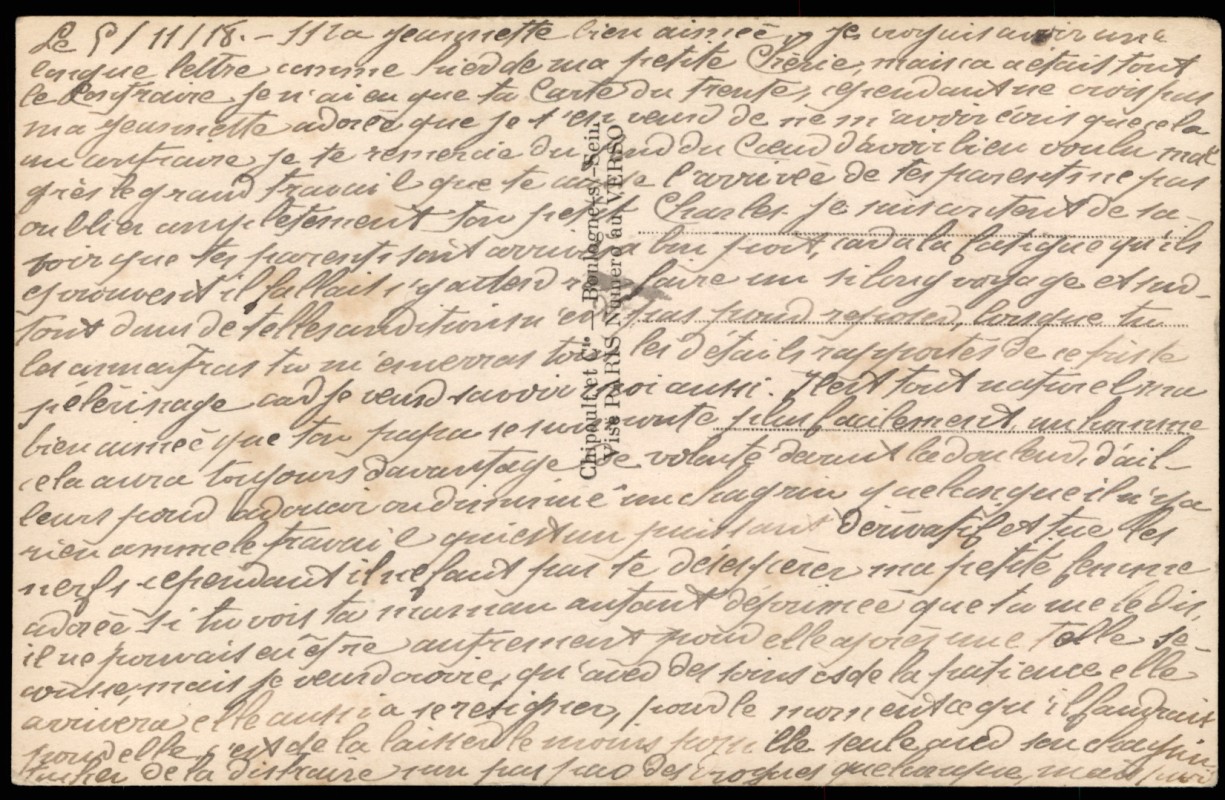 Le 5/11/18. - Ma Jeannette bien aimée, je croyais avoir une
longue lettre comme hier de ma petite Chérie, mais ca a était tout
le Contraire, je n'ai eu que ta Carte du trente, cependant ne crois pas
ma Jeannette adorée que je t'en veux de ne m'avoir écris que cela
au contraire je te remercie du fond du Cœur d'avoir bien voulu mal
grès le grand travail que te cause l'arrivée de tes parents ne pas
oublier complètement ton petit Charles. Je suis content de sa-
voir que tes parents sont arrivés a bon port, car a la fatigue qu'ils
éprouvent il fallait s'y attendre faire un si long voyage et sur-
tout dans de telles conditions n'est pas pour reposer, lorsque tu
les connaitras tu m'enverras tous les détails rapportés de ce triste
pélérinage car je veux savoir moi aussi. Il est tout naturel ma
bien aimée que ton papa se surmonte plus facilement, un homme
cela aura toujours davantage de volonté devant la douleur, d'ail-
leurs pour adoucir ou diminué un chagrin quelconque il n'y a
rien comme le travail qui est un puissant dérivatif et tue les
nerfs cependant il ne faut pas te désespérer ma petite femme
adorée si tu vois ta maman autant déprimée que tu me le dis,
il ne pouvais en être autrement pour elle après une telle se-
cousse, mais je veux croire, qu'avec des soins et de la patience elle
arrivera elle aussi a se résigner, pour le moment ce qu'il faudrait
pour elle c'est de la laisser le moins possible seule avec son chagrin,
tucher de la distraire non pas par des quelconque, mais
Chipoulet et Cie — Boulogne-s/-Sein.
Visé PARIS Numéro au VERSO